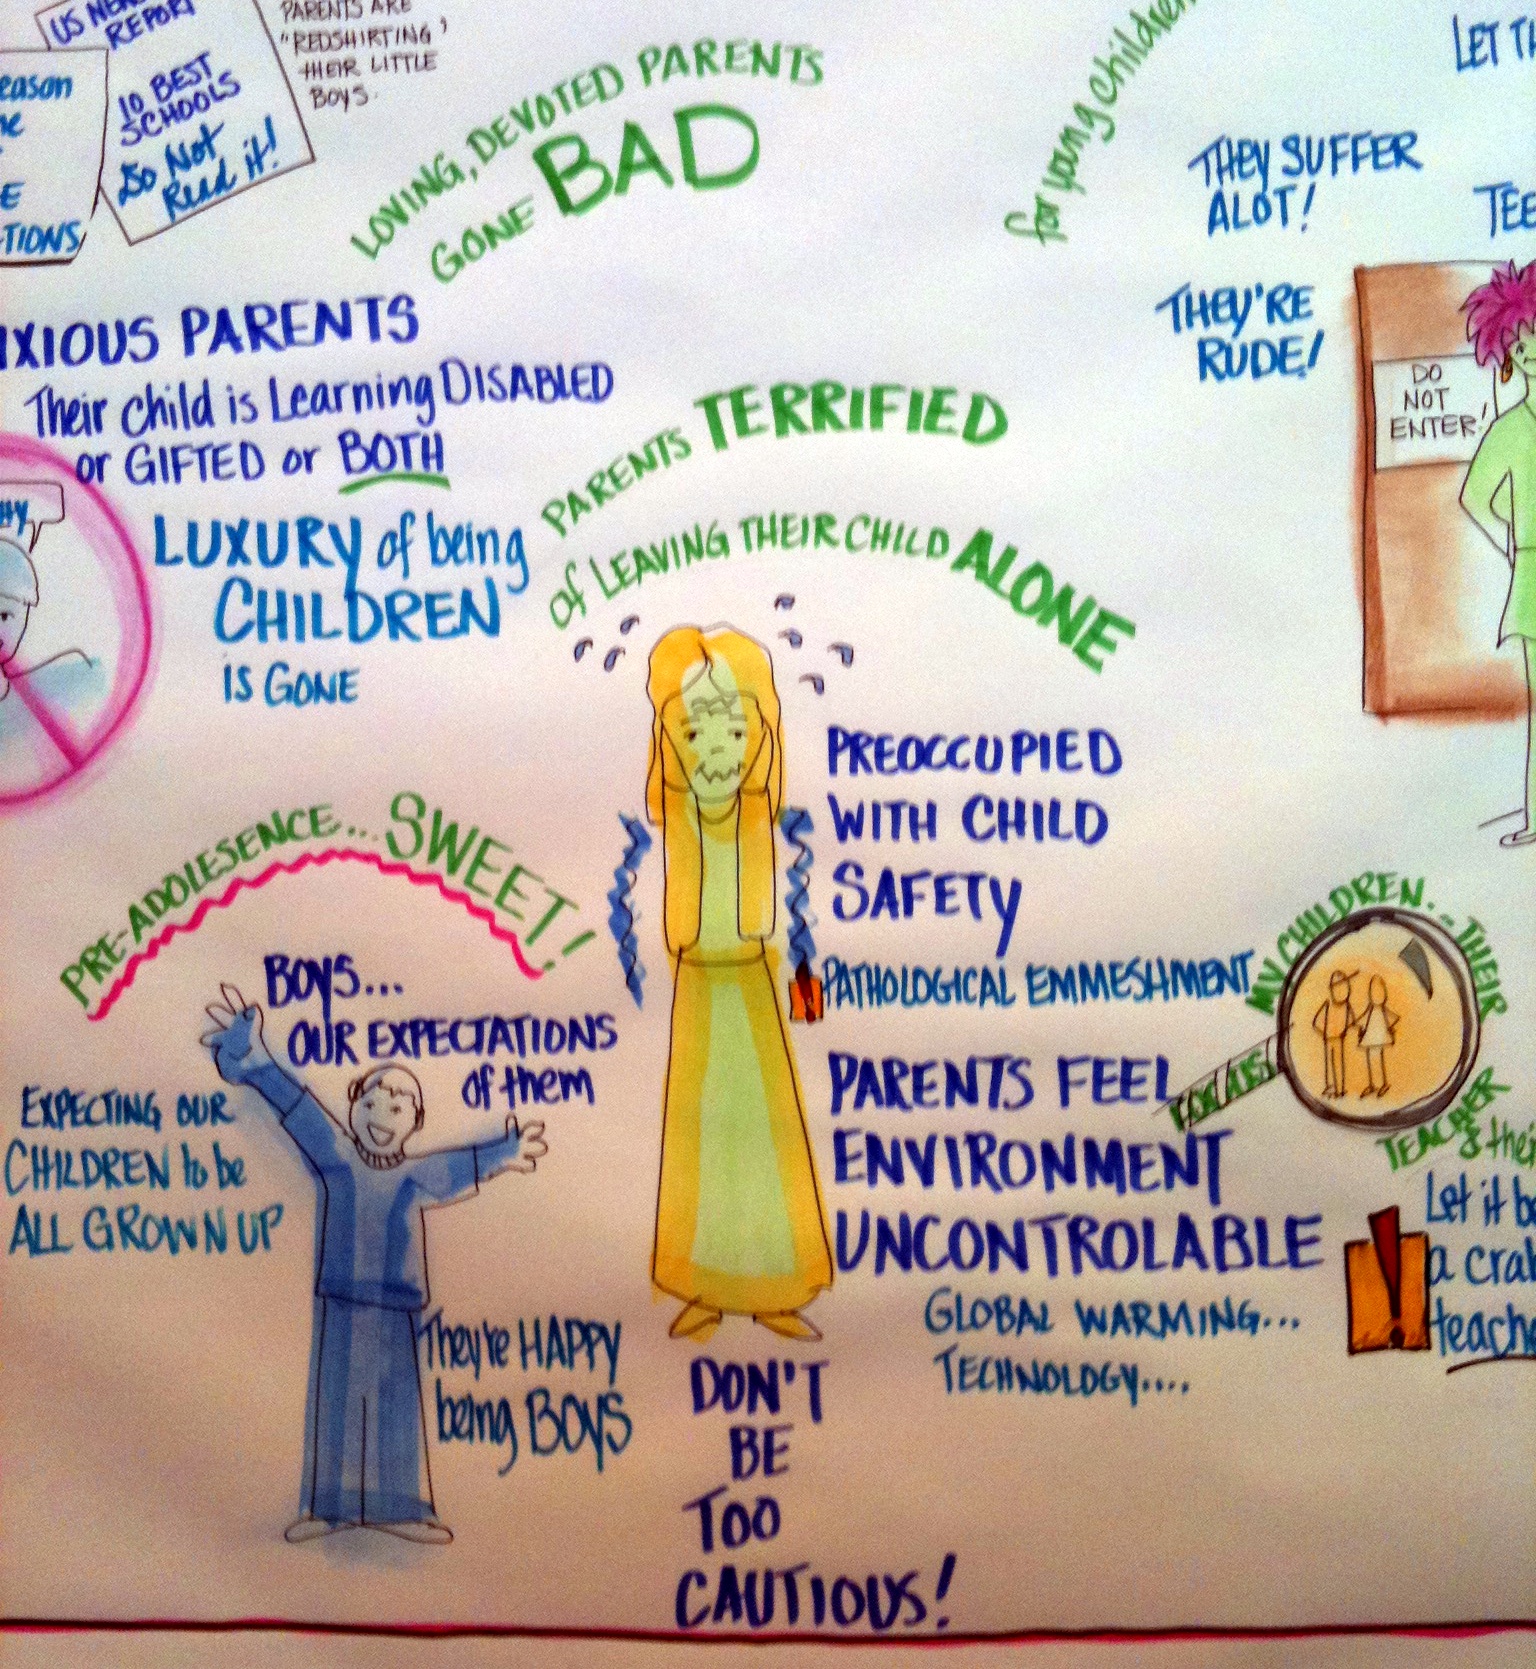 US NEWS
REPORT
10 BEST
SCHOOLS
Do Not
Read it!
PARENTS ARE
"REDSHIRTING"
THEIR LITTLE
BOYS.
eason
E
TIONS
LOVING, DEVOTED PARENTS
GONE BAD
for young children
LET TH
THEY SUFFER
ALOT!
TEE
THEY'RE
RUDE!
DO
NOT
ENTER!
IXIOUS PARENTS
Their child is Learning DISABLED
or GIFTED or BOTH
LUXURY of being
CHILDREN
IS GONE
PARENTS TERRIFIED
of LEAVING THEIR CHILD ALONE
PREOCCUPIED
WITH CHILD
SAFETY
PATHOLOGICAL EMMESHMENT
PARENTS FEEL
ENVIRONMENT
UNCONTROLABLE
GLOBAL WARMING...
TECHNOLOGY....
MY CHILDREN... THEIR
TEACHER
& their
FOCUS
Let it be
a crab
teache
PRE-ADOLESENCE... SWEET!
BOYS...
OUR EXPECTATIONS
of them
EXPECTING OUR
CHILDREN to be
ALL GROWN UP
They're HAPPY
being BOYS
DON'T
BE
TOO
CAUTIOUS!